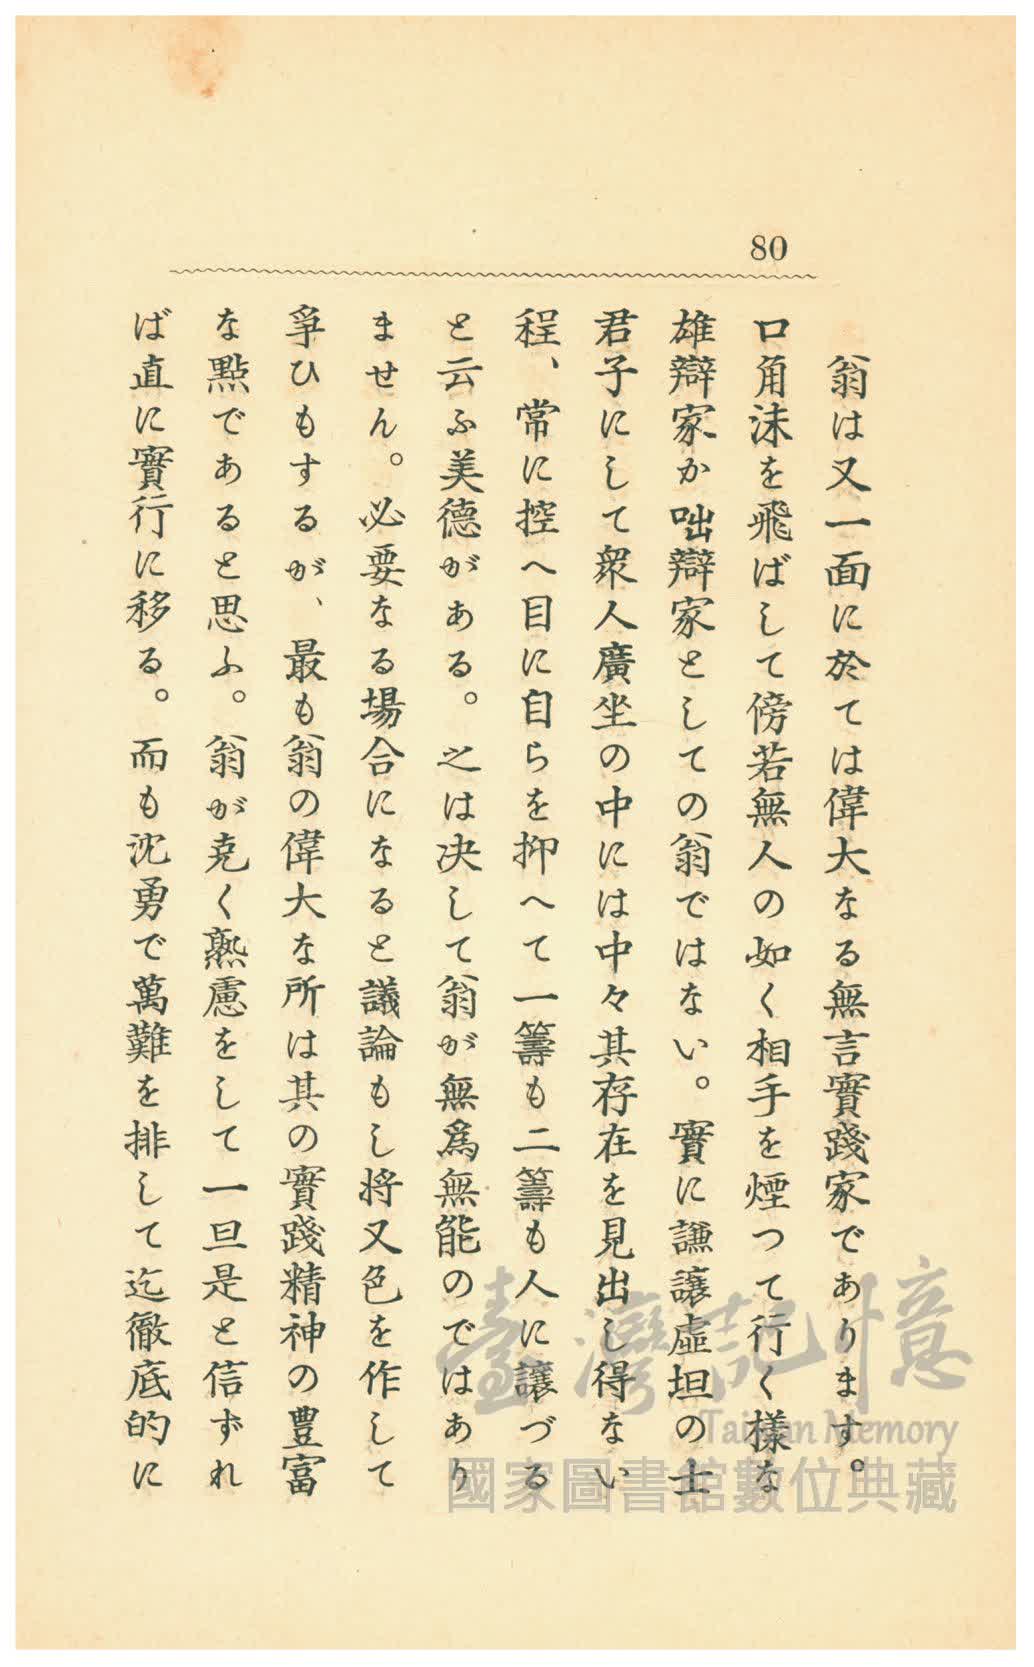 80
翁は又一面に於ては偉大なる無言實踐家であります。
口角沫を飛ばして傍若無人の如く相手を煙つて行く樣な
雄辯家か咄辯家としての翁ではない。實に謙讓虛坦の士
君子にして衆人廣坐の中には中々其存在を見出し得ない
程、常に控へ目に自らを抑へて一籌も二籌も人に讓づる
と云ふ美德がある。之は决して翁が無爲無能のではあり
ません。必要なる場合になると議論もし将又色を作して
爭ひもするが、最も翁の偉大な所は其の實踐精神の豊富
な點であると思ふ。翁が克く熟慮をして一旦是と信ずれ
ば直に實行に移る。而も沈勇で萬難を排して迄徹底的に
臺灣記憶
Taiwan Memory
國家圖書館數位典藏